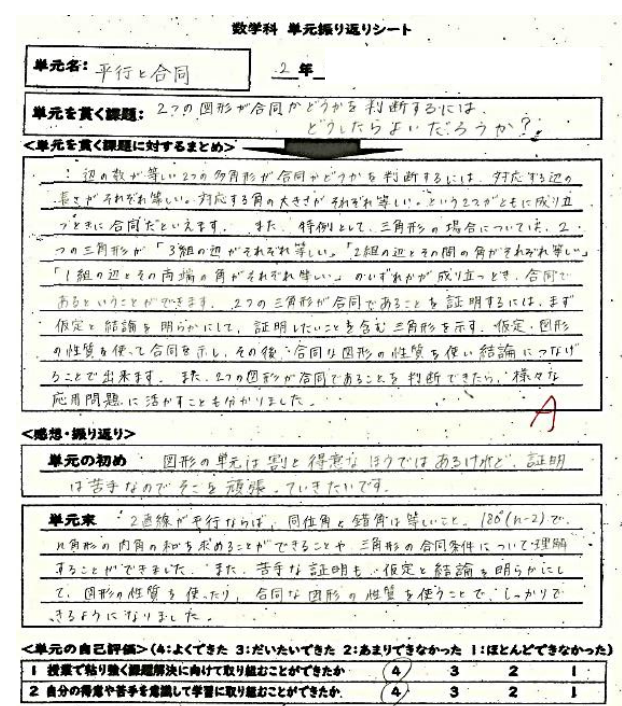 数学科 単元振り返りシート
単元名: 平行と合同 2 年
単元を貫く課題: 2つの図形が合同かどうかを判断するには
どうしたらよいだろうか?
<単元を貫く課題に対するまとめ>
辺の数が等しい2つの多角形が合同かどうかを判断するには、対応する辺の
長さがそれぞれ等しい。対応する角の大きさがそれぞれ等しい。という2つがともに成り立
つときに合同だといえます。また、特例として、三角形の場合については、2
つの三角形が「3組の辺がそれぞれ等しい」「2組の辺とその間の角がそれぞれ等しい」
「1組の辺とその両端の角がそれぞれ等しい」のいずれかが成り立つとき、合同で
あるということができます。2つの三角形が合同であることを証明するには、まず
仮定と結論を明らかにして、証明したいことを含む三角形を示す。仮定・図形
の性質を使って合同を示し、その後、合同な図形の性質を使い結論につなげ
ることで出来ます。また、2つの図形が合同であることを判断できたら、様々な
応用問題に活かすことも分かりました。
A
<感想・振り返り>
単元の初め 図形の単元は割と得意なほうではあるけれど、証明
は苦手なのでそこを頑張っていきたいです。
単元末 2直線が平行ならば、同位角と錯角は等しいこと。180°(n-2)で、
n角形の内角の和を求めることができることや三角形の合同条件について理解
することができました。また、苦手な証明も、仮定と結論を明らかにし
て、図形の性質を使ったり、合同な図形の性質を使うことで、しっかりで
きるようになりました。
<単元の自己評価>(4:よくできた 3:だいたいできた 2:あまりできなかった 1:ほとんどできなかった)
1 授業で粘り強く課題解決に向けて取り組むことができたか 4 3 2 1
2 自分の得意や苦手を意識して学習に取り組むことができたか 4 3 2 1